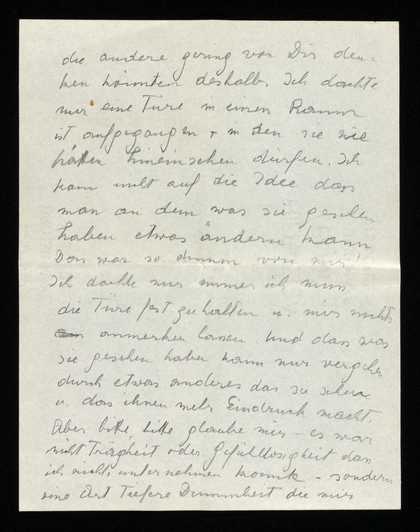 die andere gering von Dir den-
ken könnten deshalb. Ich dachte
mir eine Türe in einen Raum
ist aufgegangen + in den sie nie
hätten hineinsehen dürfen. Ich
kam nicht auf die Idee dass
man an dem was sie gesehen
haben etwas ändern kann
Das war so dumm von mir!
Ich dachte nur immer ich muss
die Türe fest zu halten u. mir nichts
anmerken lassen und dass was
sie gesehen haben kann nur vergehen
durch etwas anderes das sie sehen
u. das ihnen mehr Eindruck macht.
Aber bitte, bitte glaube mir – es war
nicht Trägheit oder Gefühllosigkeit dass
ich nichts unternehmen konnte – sondern
eine Art tiefere Dummheit die mir